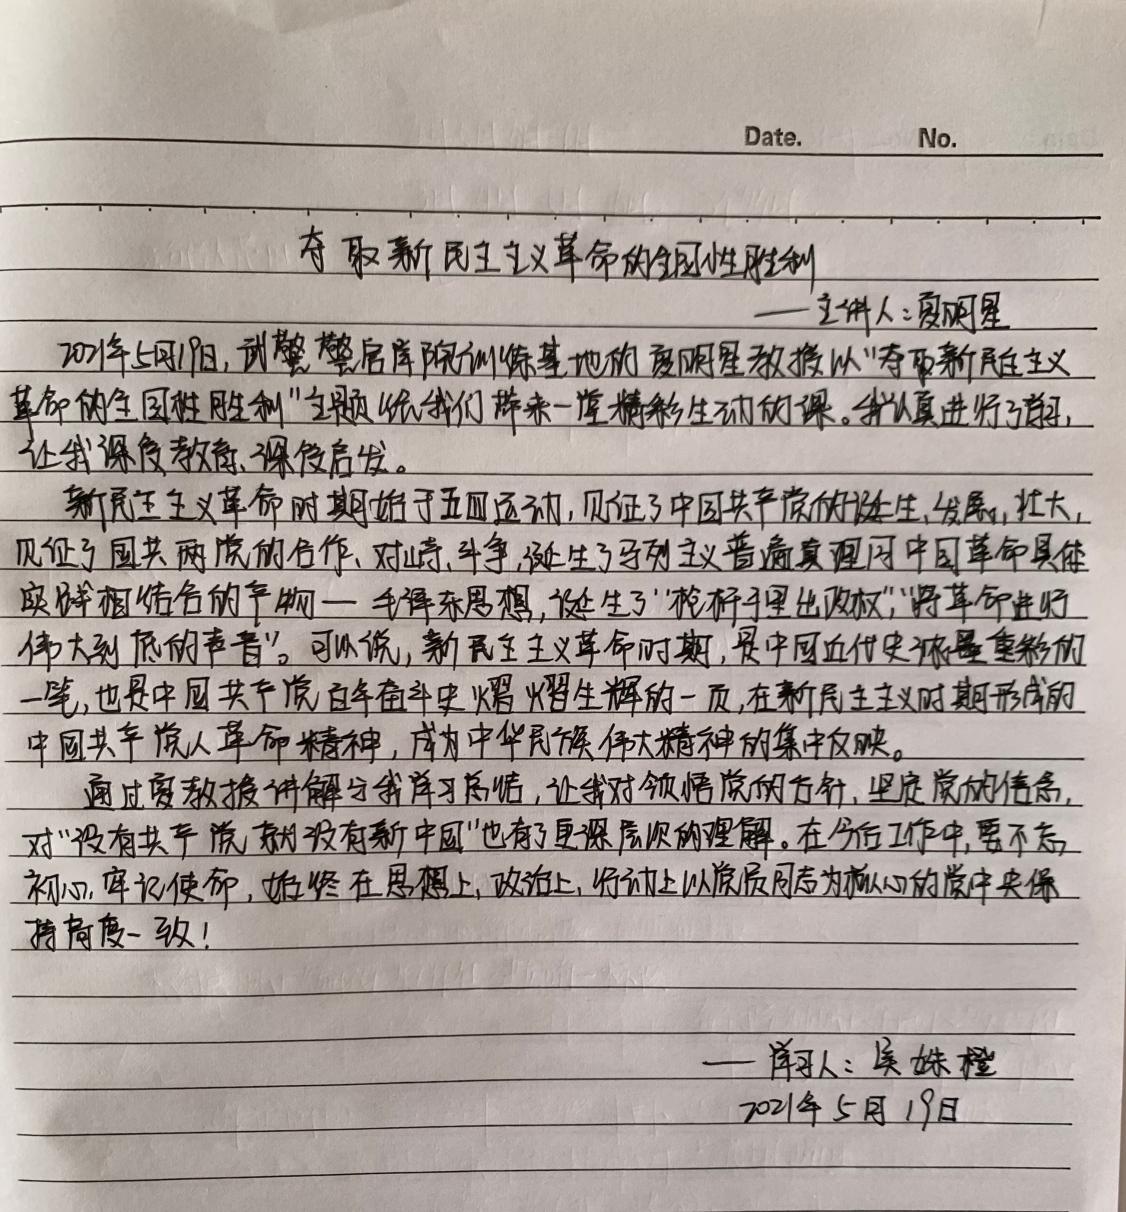 Date. No.
夺取新民主主义革命的全国性胜利
——主讲人：夏明星
2021年5月19日，武警警官学院训练基地的夏明星教授以"夺取新民主主义
革命的全国性胜利"主题给我们带来一堂精彩生动的课。我认真进行了学习，
让我深受教育、深受启发。
新民主主义革命时期始于五四运动，见证了中国共产党的诞生、发展、壮大，
见证了国共两党的合作、对峙、斗争，诞生了马列主义普遍真理同中国革命具体
实践相结合的产物—毛泽东思想，诞生了"枪杆子里出政权"，"将革命进行
伟大到底的声音"。可以说，新民主主义革命时期，是中国近代史浓墨重彩的
一笔，也是中国共产党百年奋斗史熠熠生辉的一页，在新民主主义时期形成的
中国共产党人革命精神，成为中华民族伟大精神的集中反映。
通过夏教授讲解与我学习总结，让我对领悟党的方针、坚定党的信念，
对"没有共产党就没有新中国"也有了更深层次的理解。在今后工作中，要不忘
初心、牢记使命，始终在思想上、政治上、行动上以党员同志为核心的党中央保
持高度一致！
——学习人：侯姝橙
2021年5月19日